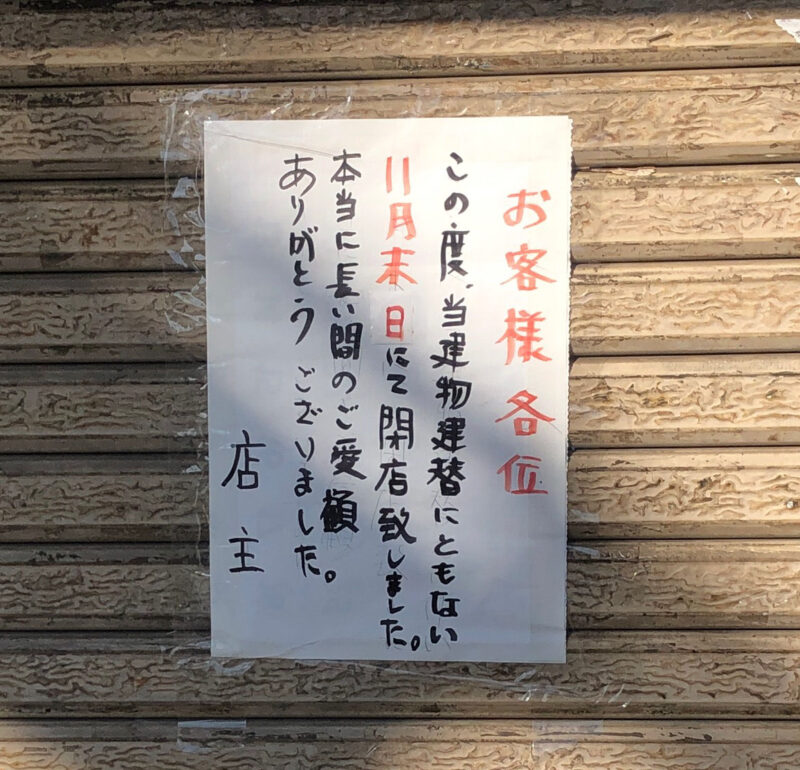 お客様各位
この度、当建物建替にともない
11月末日にて閉店致しました。
本当に長い間のご愛顧
ありがとうございました。
店主